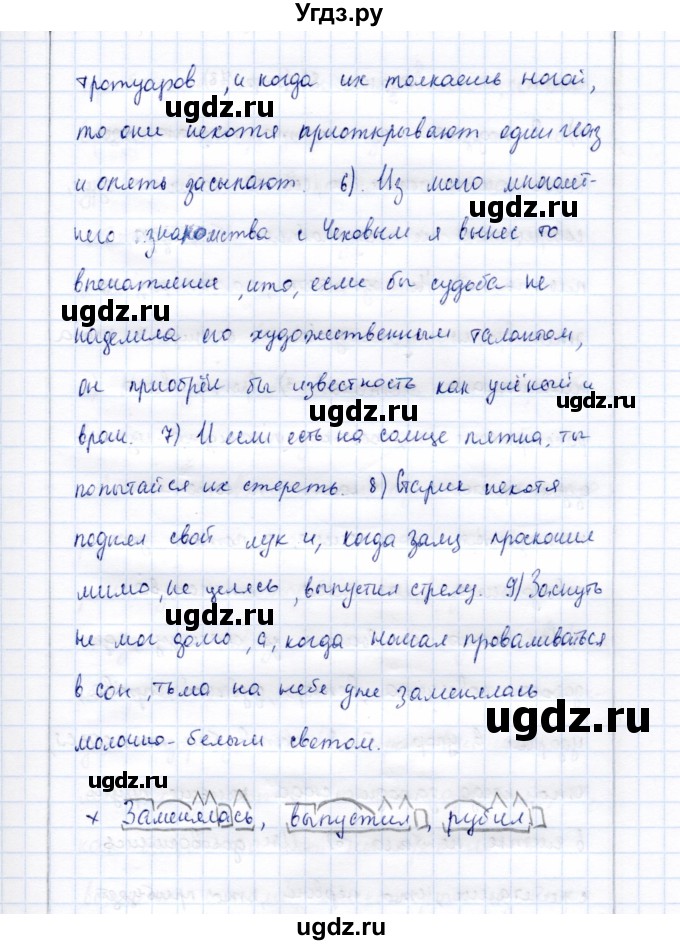 Угдз.ру
тротуаров, и когда их толкаешь ногой,
то они нехотя приоткрывают один глаз
и опять засыпают. 6) Из моего многолет-
него знакомства с Чеховым я вынес то
впечатление, что, если бы судьба не
наделила его художественным талантом,
он приобрёл бы известность как учёный и
врач. 7) И если есть на солнце пятна, ты
попытайся их стереть. 8) Старик нехотя
поднял свой лук и, когда заяц проскочил
мимо, не целясь, выпустил стрелу. 9) Заснуть
не мог долго, а, когда начал проваливаться
в сон, тьма на небе уже заменялась
молочно-белым светом.
× Заменялась, выпустил, рубил
ugdz.ru
ugdz.ru
ugdz.ru
ugdz.ru
ugdz.ru
ugdz.ru
ugdz.ru
ugdz.ru
ugdz.ru
ugdz.ru
ugdz.ru
ugdz.ru